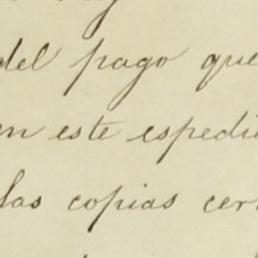 del pago que
en este espedi
las copias cer